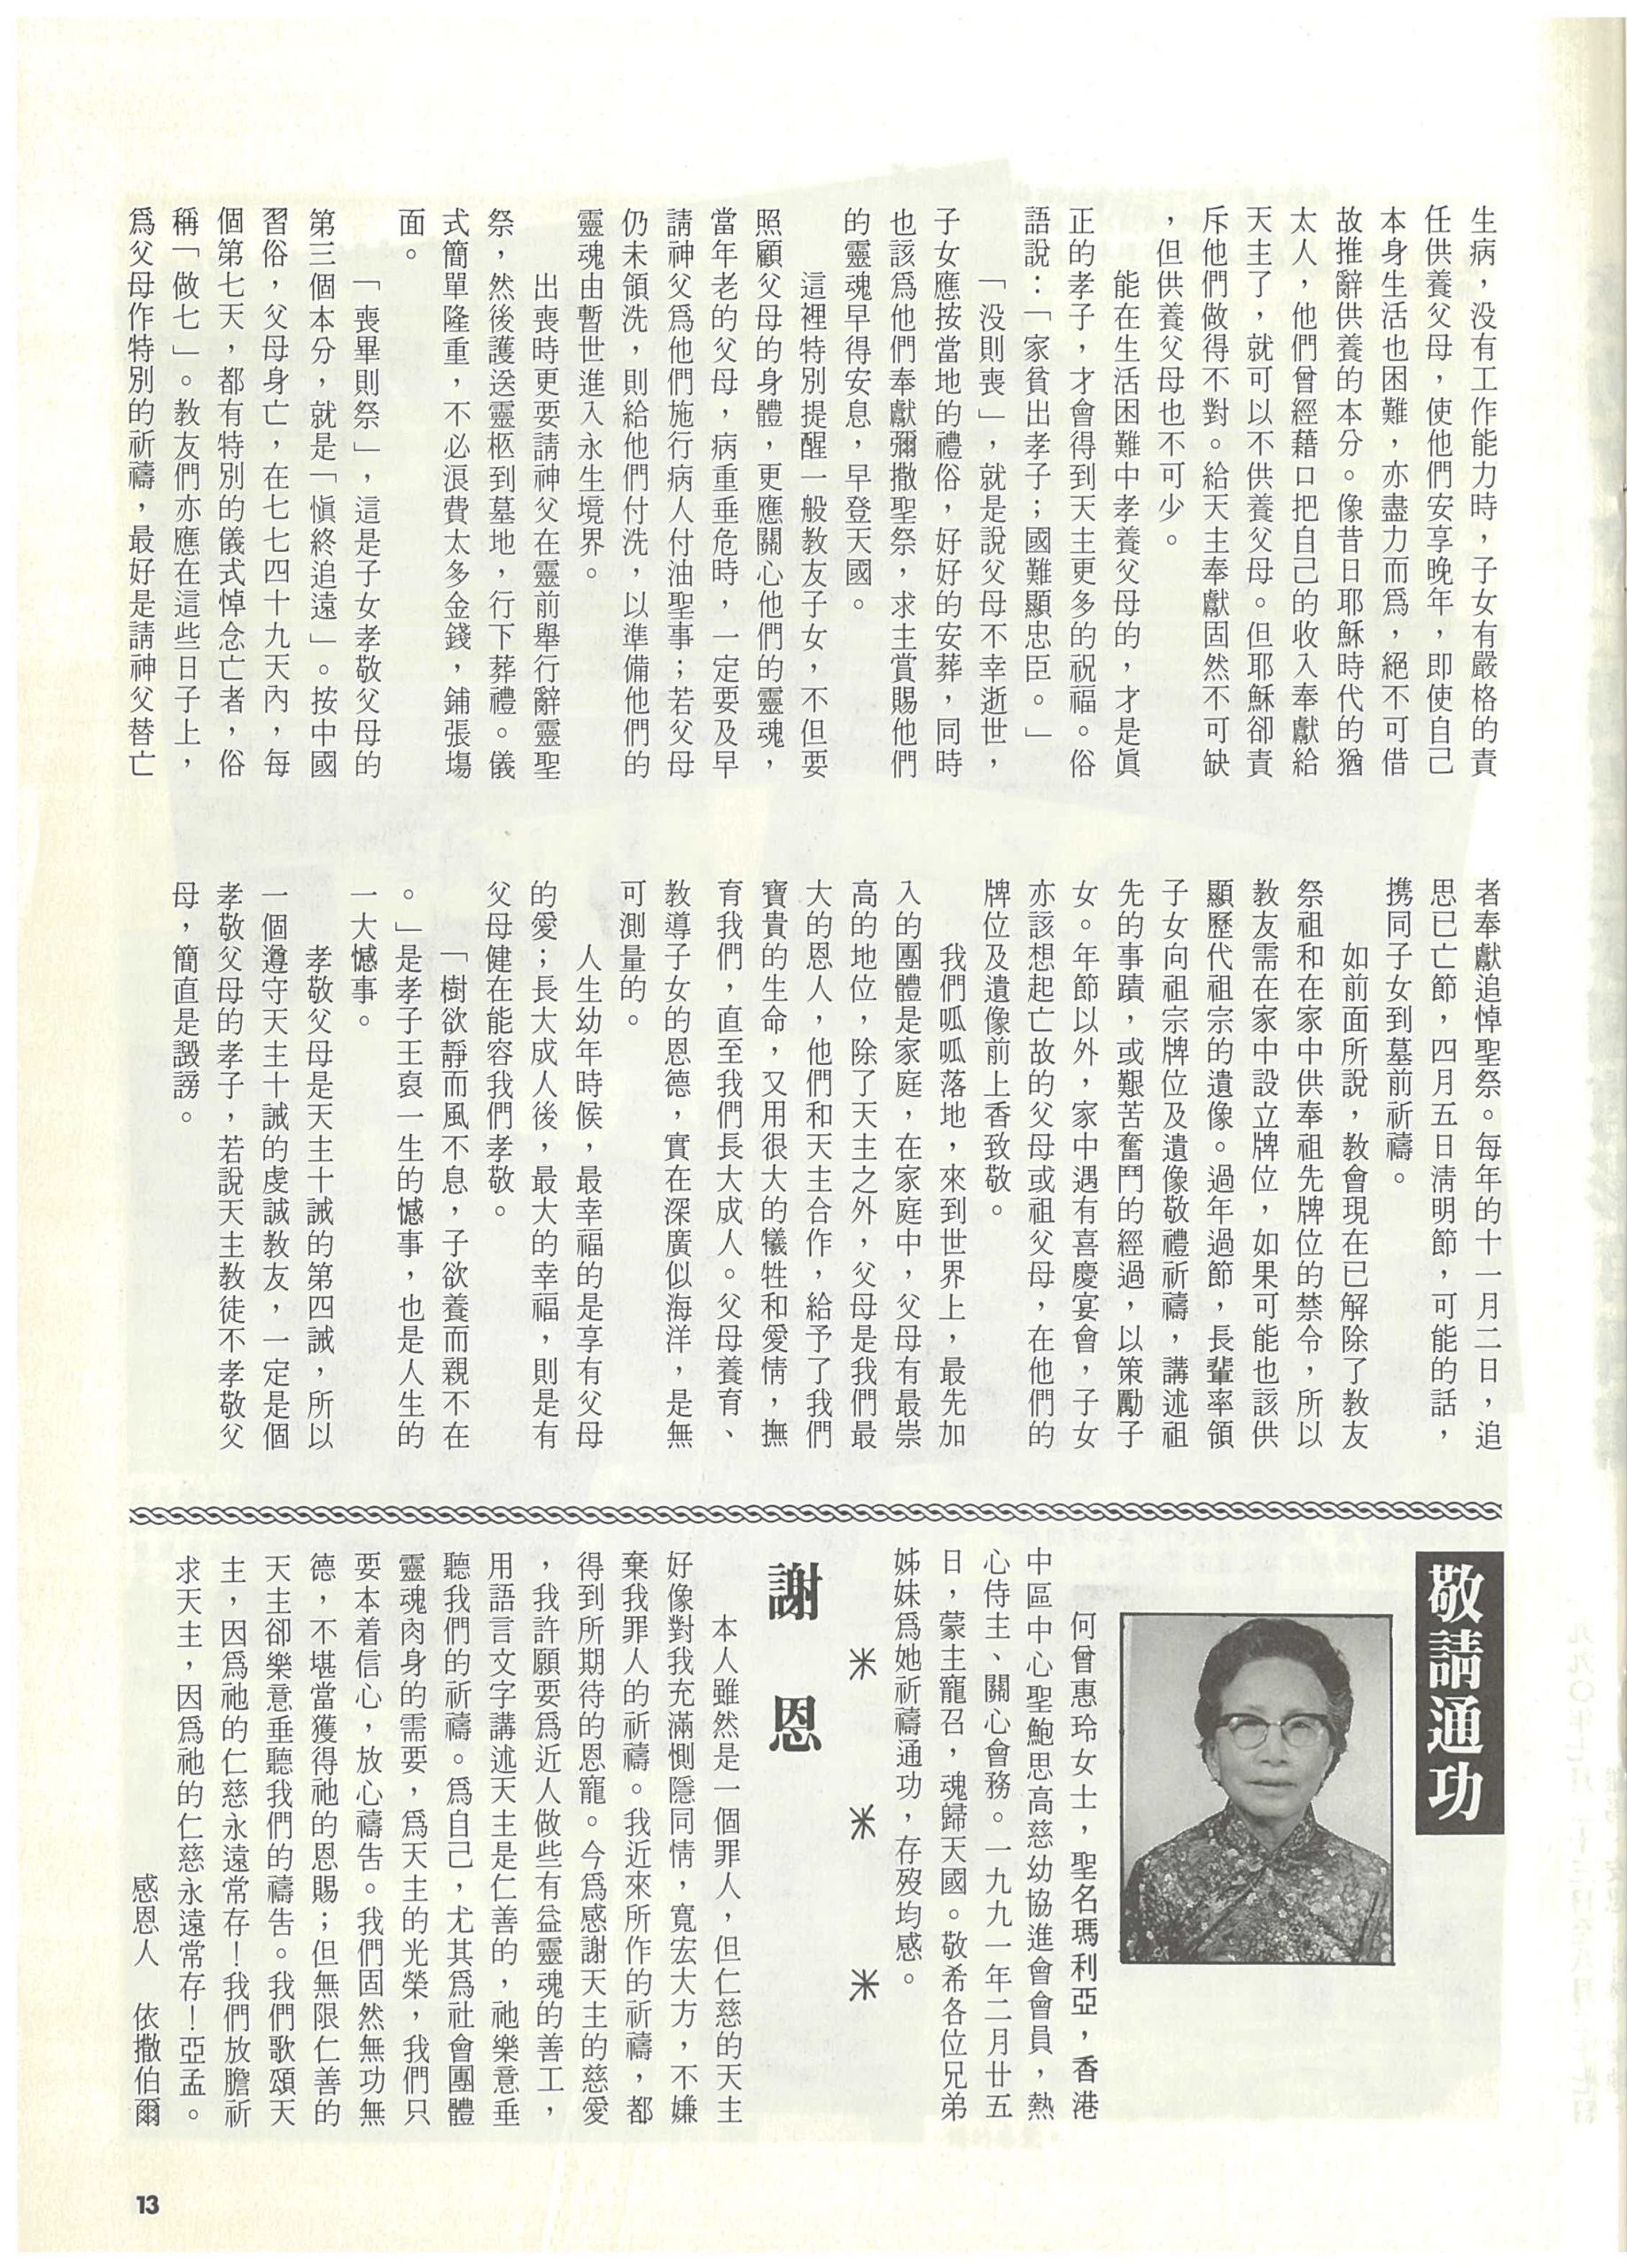 生病，没有工作能力時，子女有嚴格的責
任供養父母，使他們安享晚年，即使自己
本身生活也困難，亦盡力而爲，絕不可借
故推辭供養的本分。像昔日耶穌時代的猶
太人，他們曾經藉口把自己的收入奉獻給
天主了，就可以不供養父母。但耶穌卻責
斥他們做得不對。給天主奉獻固然不可缺
，但供養父母也不可少。
能在生活困難中孝養父母的，才是眞
正的孝子，才會得到天主更多的祝福。俗
語說：「家貧出孝子；國難顯忠臣。」
「没則喪」，就是說父母不幸逝世，
子女應按當地的禮俗，好好的安葬，同時
也該爲他們奉獻彌撒聖祭，求主賞賜他們
的靈魂早得安息，早登天國。
這裡特別提醒一般教友子女，不但要
照顧父母的身體，更應關心他們的靈魂，
當年老的父母，病重垂危時，一定要及早
請神父爲他們施行病人付油聖事；若父母
仍未領洗，則給他們付洗，以準備他們的
靈魂由暫世進入永生境界。
出喪時更要請神父在靈前舉行辭靈聖
祭，然後護送靈柩到墓地，行下葬禮。儀
式簡單隆重，不必浪費太多金錢，鋪張塲
面。
「喪畢則祭」，這是子女孝敬父母的
第三個本分，就是「愼終追遠」。按中國
習俗，父母身亡，在七七四十九天內，每
個第七天，都有特別的儀式悼念亡者，俗
稱「做七」。教友們亦應在這些日子上，
爲父母作特別的祈禱，最好是請神父替亡
者奉獻追悼聖祭。每年的十一月二日，追
思已亡節，四月五日淸明節，可能的話，
携同子女到墓前祈禱。
如前面所說，教會現在已解除了教友
祭祖和在家中供奉祖先牌位的禁令，所以
教友需在家中設立牌位，如果可能也該供
顯歷代祖宗的遺像。過年過節，長輩率領
子女向祖宗牌位及遺像敬禮祈禱，講述祖
先的事蹟，或艱苦奮鬥的經過，以策勵子
女。年節以外，家中遇有喜慶宴會，子女
亦該想起亡故的父母或祖父母，在他們的
牌位及遺像前上香致敬。
我們呱呱落地，來到世界上，最先加
入的團體是家庭，在家庭中，父母有最崇
高的地位，除了天主之外，父母是我們最
大的恩人，他們和天主合作，給予了我們
寶貴的生命，又用很大的犧牲和愛情，撫
育我們，直至我們長大成人。父母養育、
教導子女的恩德，實在深廣似海洋，是無
可測量的。
人生幼年時候，最幸福的是享有父母
的愛；長大成人後，最大的幸福，則是有
父母健在能容我們孝敬。
「樹欲靜而風不息，子欲養而親不在
。」是孝子王裒一生的憾事，也是人生的
一大憾事。
孝敬父母是天主十誡的第四誡，所以
一個遵守天主十誡的虔誠教友，一定是個
孝敬父母的孝子，若說天主教徒不孝敬父
母，簡直是譭謗。
敬請通功
何曾惠玲女士，聖名瑪利亞，香港
中區中心聖鮑思高慈幼協進會會員，熱
心侍主、關心會務。一九九一年二月廿五
日，蒙主寵召，魂歸天國。敬希各位兄弟
姊妹爲她祈禱通功，存歿均感。
＊　＊　＊
謝恩
本人雖然是一個罪人，但仁慈的天主
好像對我充滿惻隱同情，寬宏大方，不嫌
棄我罪人的祈禱。我近來所作的祈禱，都
得到所期待的恩寵。今爲感謝天主的慈愛
，我許願要爲近人做些有益靈魂的善工，
用語言文字講述天主是仁善的，祂樂意垂
聽我們的祈禱。爲自己，尤其爲社會團體
靈魂肉身的需要，爲天主的光榮，我們只
要本着信心，放心禱告。我們固然無功無
德，不堪當獲得祂的恩賜；但無限仁善的
天主卻樂意垂聽我們的禱告。我們歌頌天
主，因爲祂的仁慈永遠常存！我們放膽祈
求天主，因爲祂的仁慈永遠常存！亞孟。
感恩人　依撒伯爾
13